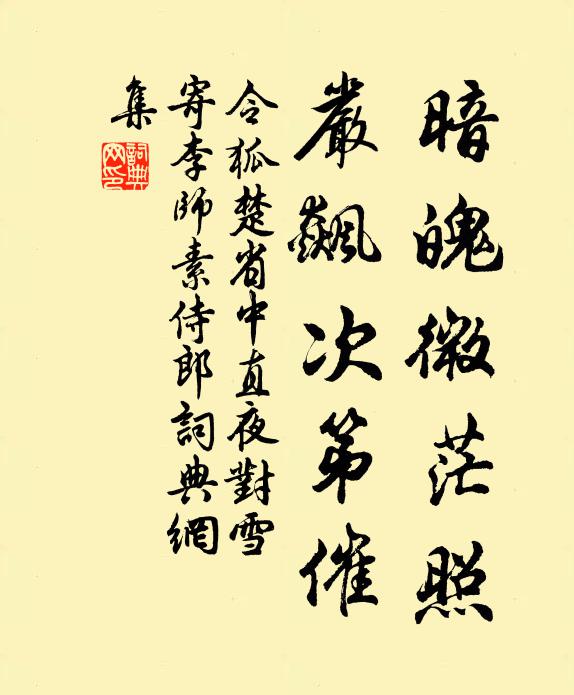 暗魄微茫照
嚴飆次第催
令狐楚省中直夜對雪
寄李師素侍郎詞典網
集
詞典網印